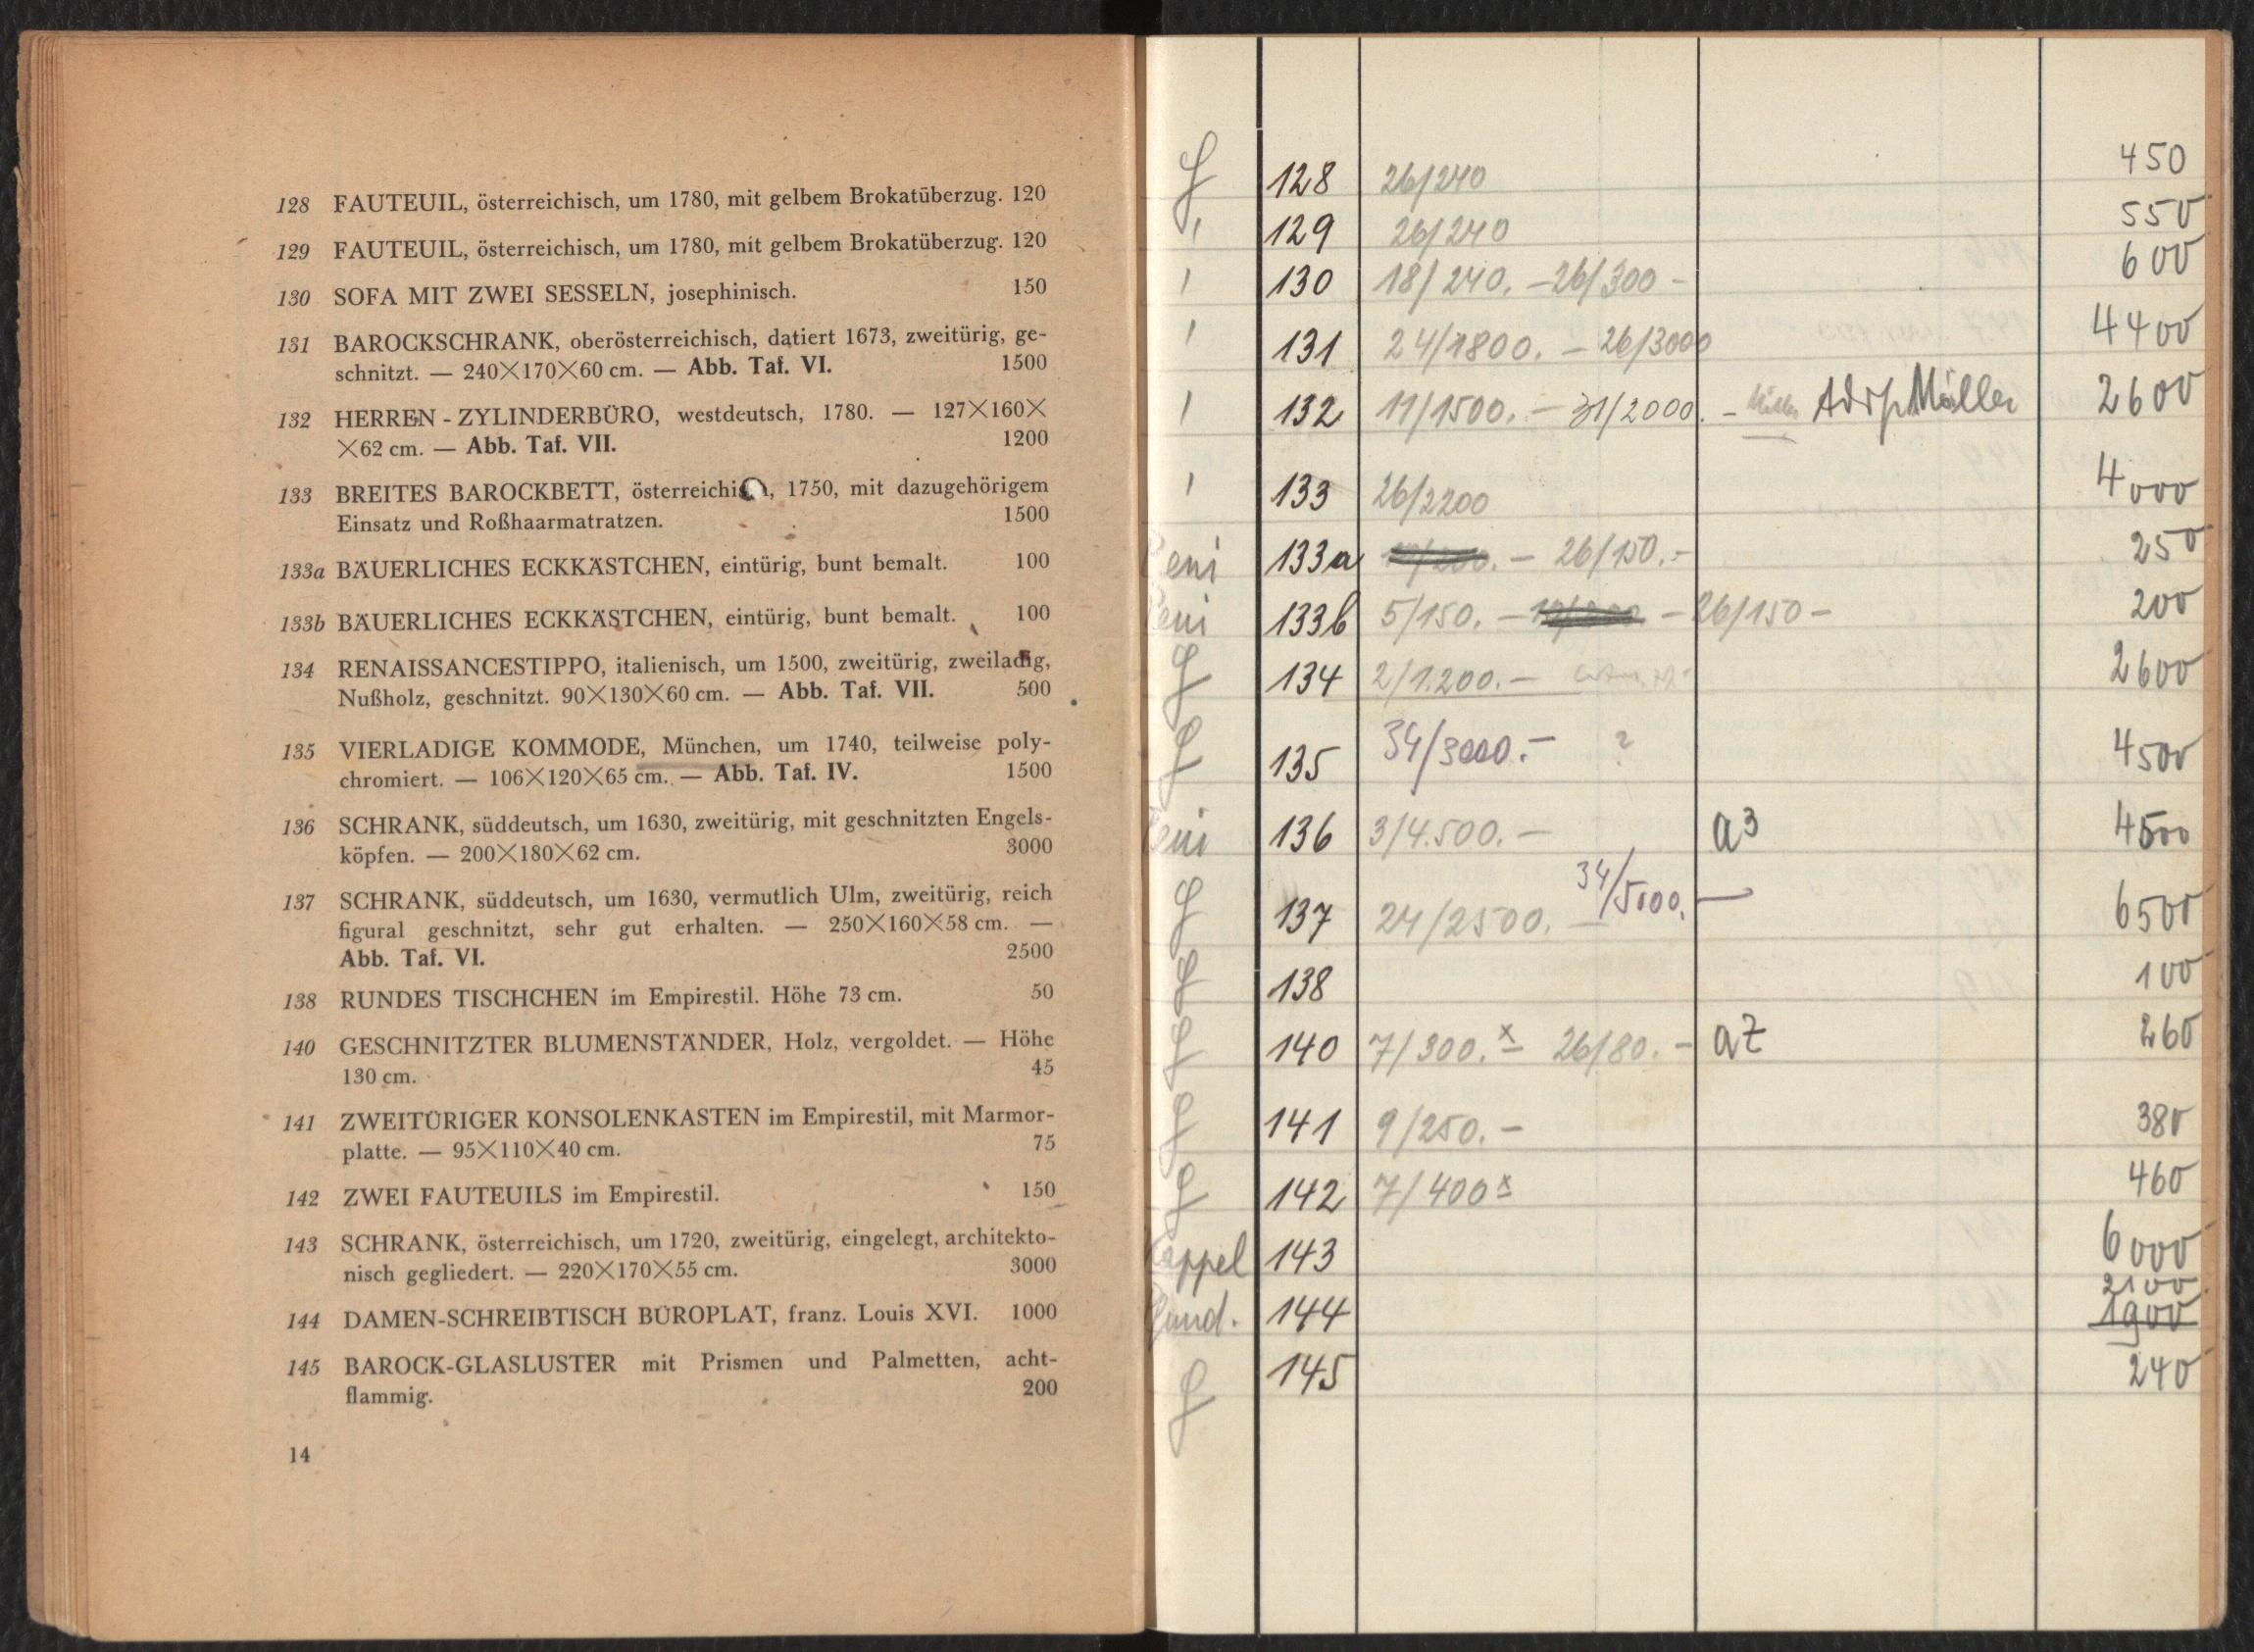 128 FAUTEUIL, österreichisch, um 1780, mit gelbem Brokatüberzug. 120
129 FAUTEUIL, österreichisch, um 1780, mit gelbem Brokatüberzug. 120
130 SOFA MIT ZWEI SESSELN, josephinisch. 150
131 BAROCKSCHRANK, oberösterreichisch, datiert 1673, zweitürig, ge-
schnitzt. — 240×170×60 cm. — Abb. Taf. VI. 1500
132 HERREN - ZYLINDERBÜRO, westdeutsch, 1780. — 127×160×
×62 cm. — Abb. Taf. VII. 1200
133 BREITES BAROCKBETT, österreichisch, 1750, mit dazugehörigem
Einsatz und Roßhaarmatratzen. 1500
133a BÄUERLICHES ECKKÄSTCHEN, eintürig, bunt bemalt. 100
133b BÄUERLICHES ECKKÄSTCHEN, eintürig, bunt bemalt. 100
134 RENAISSANCESTIPPO, italienisch, um 1500, zweitürig, zweiladig,
Nußholz, geschnitzt. 90×130×60 cm. — Abb. Taf. VII. 500
135 VIERLADIGE KOMMODE, München, um 1740, teilweise poly-
chromiert. — 106×120×65 cm. — Abb. Taf. IV. 1500
136 SCHRANK, süddeutsch, um 1630, zweitürig, mit geschnitzten Engels-
köpfen. — 200×180×62 cm. 3000
137 SCHRANK, süddeutsch, um 1630, vermutlich Ulm, zweitürig, reich
figural geschnitzt, sehr gut erhalten. — 250×160×58 cm. —
Abb. Taf. VI. 2500
138 RUNDES TISCHCHEN im Empirestil. Höhe 73 cm. 50
140 GESCHNITZTER BLUMENSTÄNDER, Holz, vergoldet. — Höhe
130 cm. 45
141 ZWEITÜRIGER KONSOLENKASTEN im Empirestil, mit Marmor-
platte. — 95×110×40 cm. 75
142 ZWEI FAUTEUILS im Empirestil. 150
143 SCHRANK, österreichisch, um 1720, zweitürig, eingelegt, architekto-
nisch gegliedert. — 220×170×55 cm. 3000
144 DAMEN-SCHREIBTISCH BÜROPLAT, franz. Louis XVI. 1000
145 BAROCK-GLASLUSTER mit Prismen und Palmetten, acht-
flammig. 200
14
128 26/240 450
129 26/240 550
130 18/240. – 26/300 – 600
131 24/1800. – 26/3000 4400
132 11/1500. – 31/2000. – Müller 2600
133 26/2200 4000
133a – 26/150.- 250
133b 5/150. – – 26/150 – 200
134 2/1.200. – 2600
135 34/3000.- ? 4500
136 3/4.500. – a3 4500
137 24/2500. – 34/5000. — 6500
138 100
140 7/300. x 26/80. – aZ 260
141 9/250. – 380
142 7/400 x 460
143 6000
144 2100 1900
145 240